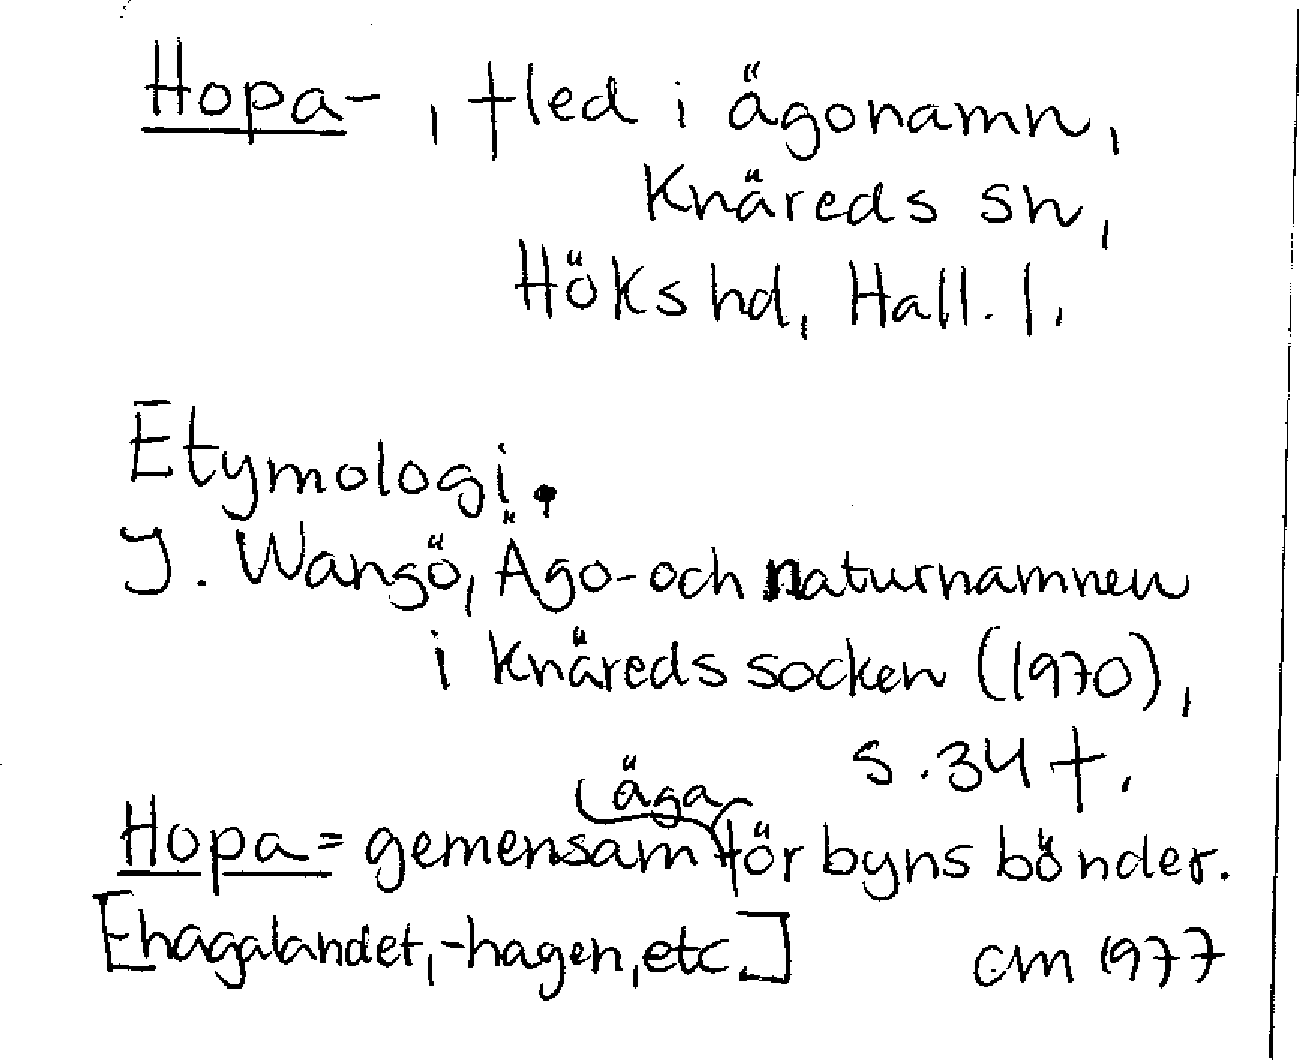 Hopa-, fled i ägonamn,
Knäreds sn,
Höks hd, Hall. l.
Etymologi.
J. Wangö, Ägo- och naturnamnen
i Knäreds socken (1970),
s. 34 f.
äga
Hopa = gemensam för byns bönder.
[-hagalandet, -hagen, etc.] cm 1977